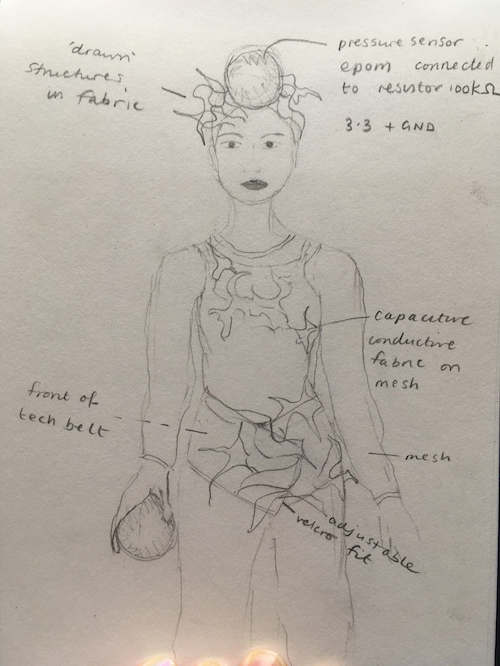 'drawn'
structures
in fabric
pressure sensor
epom connected
to resistor 100kΩ
3.3 + GND
capacitive
conductive
fabric on
mesh
front of
tech belt
mesh
adjustable
velcro fit